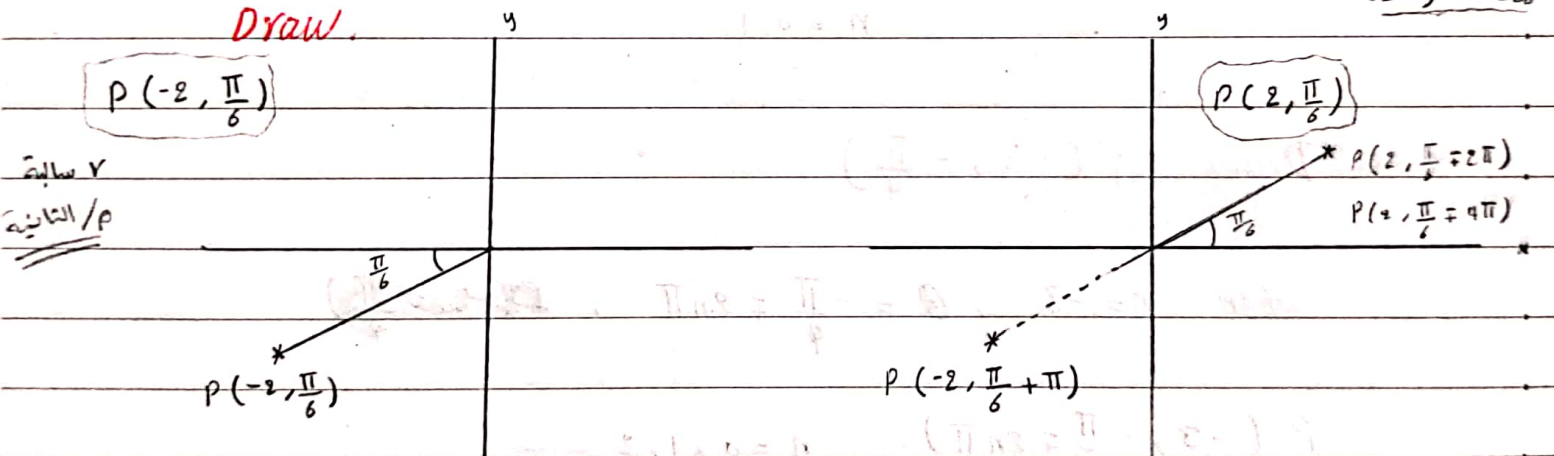 Draw.
y
y
P(-2, π/6)
P(2, π/6)
r سالبة
م/ الثانية
P(2, π/6 ∓ 2π)
P(2, π/6 ∓ 4π)
π/6
π/6
P(-2, π/6)
P(-2, π/6 + π)